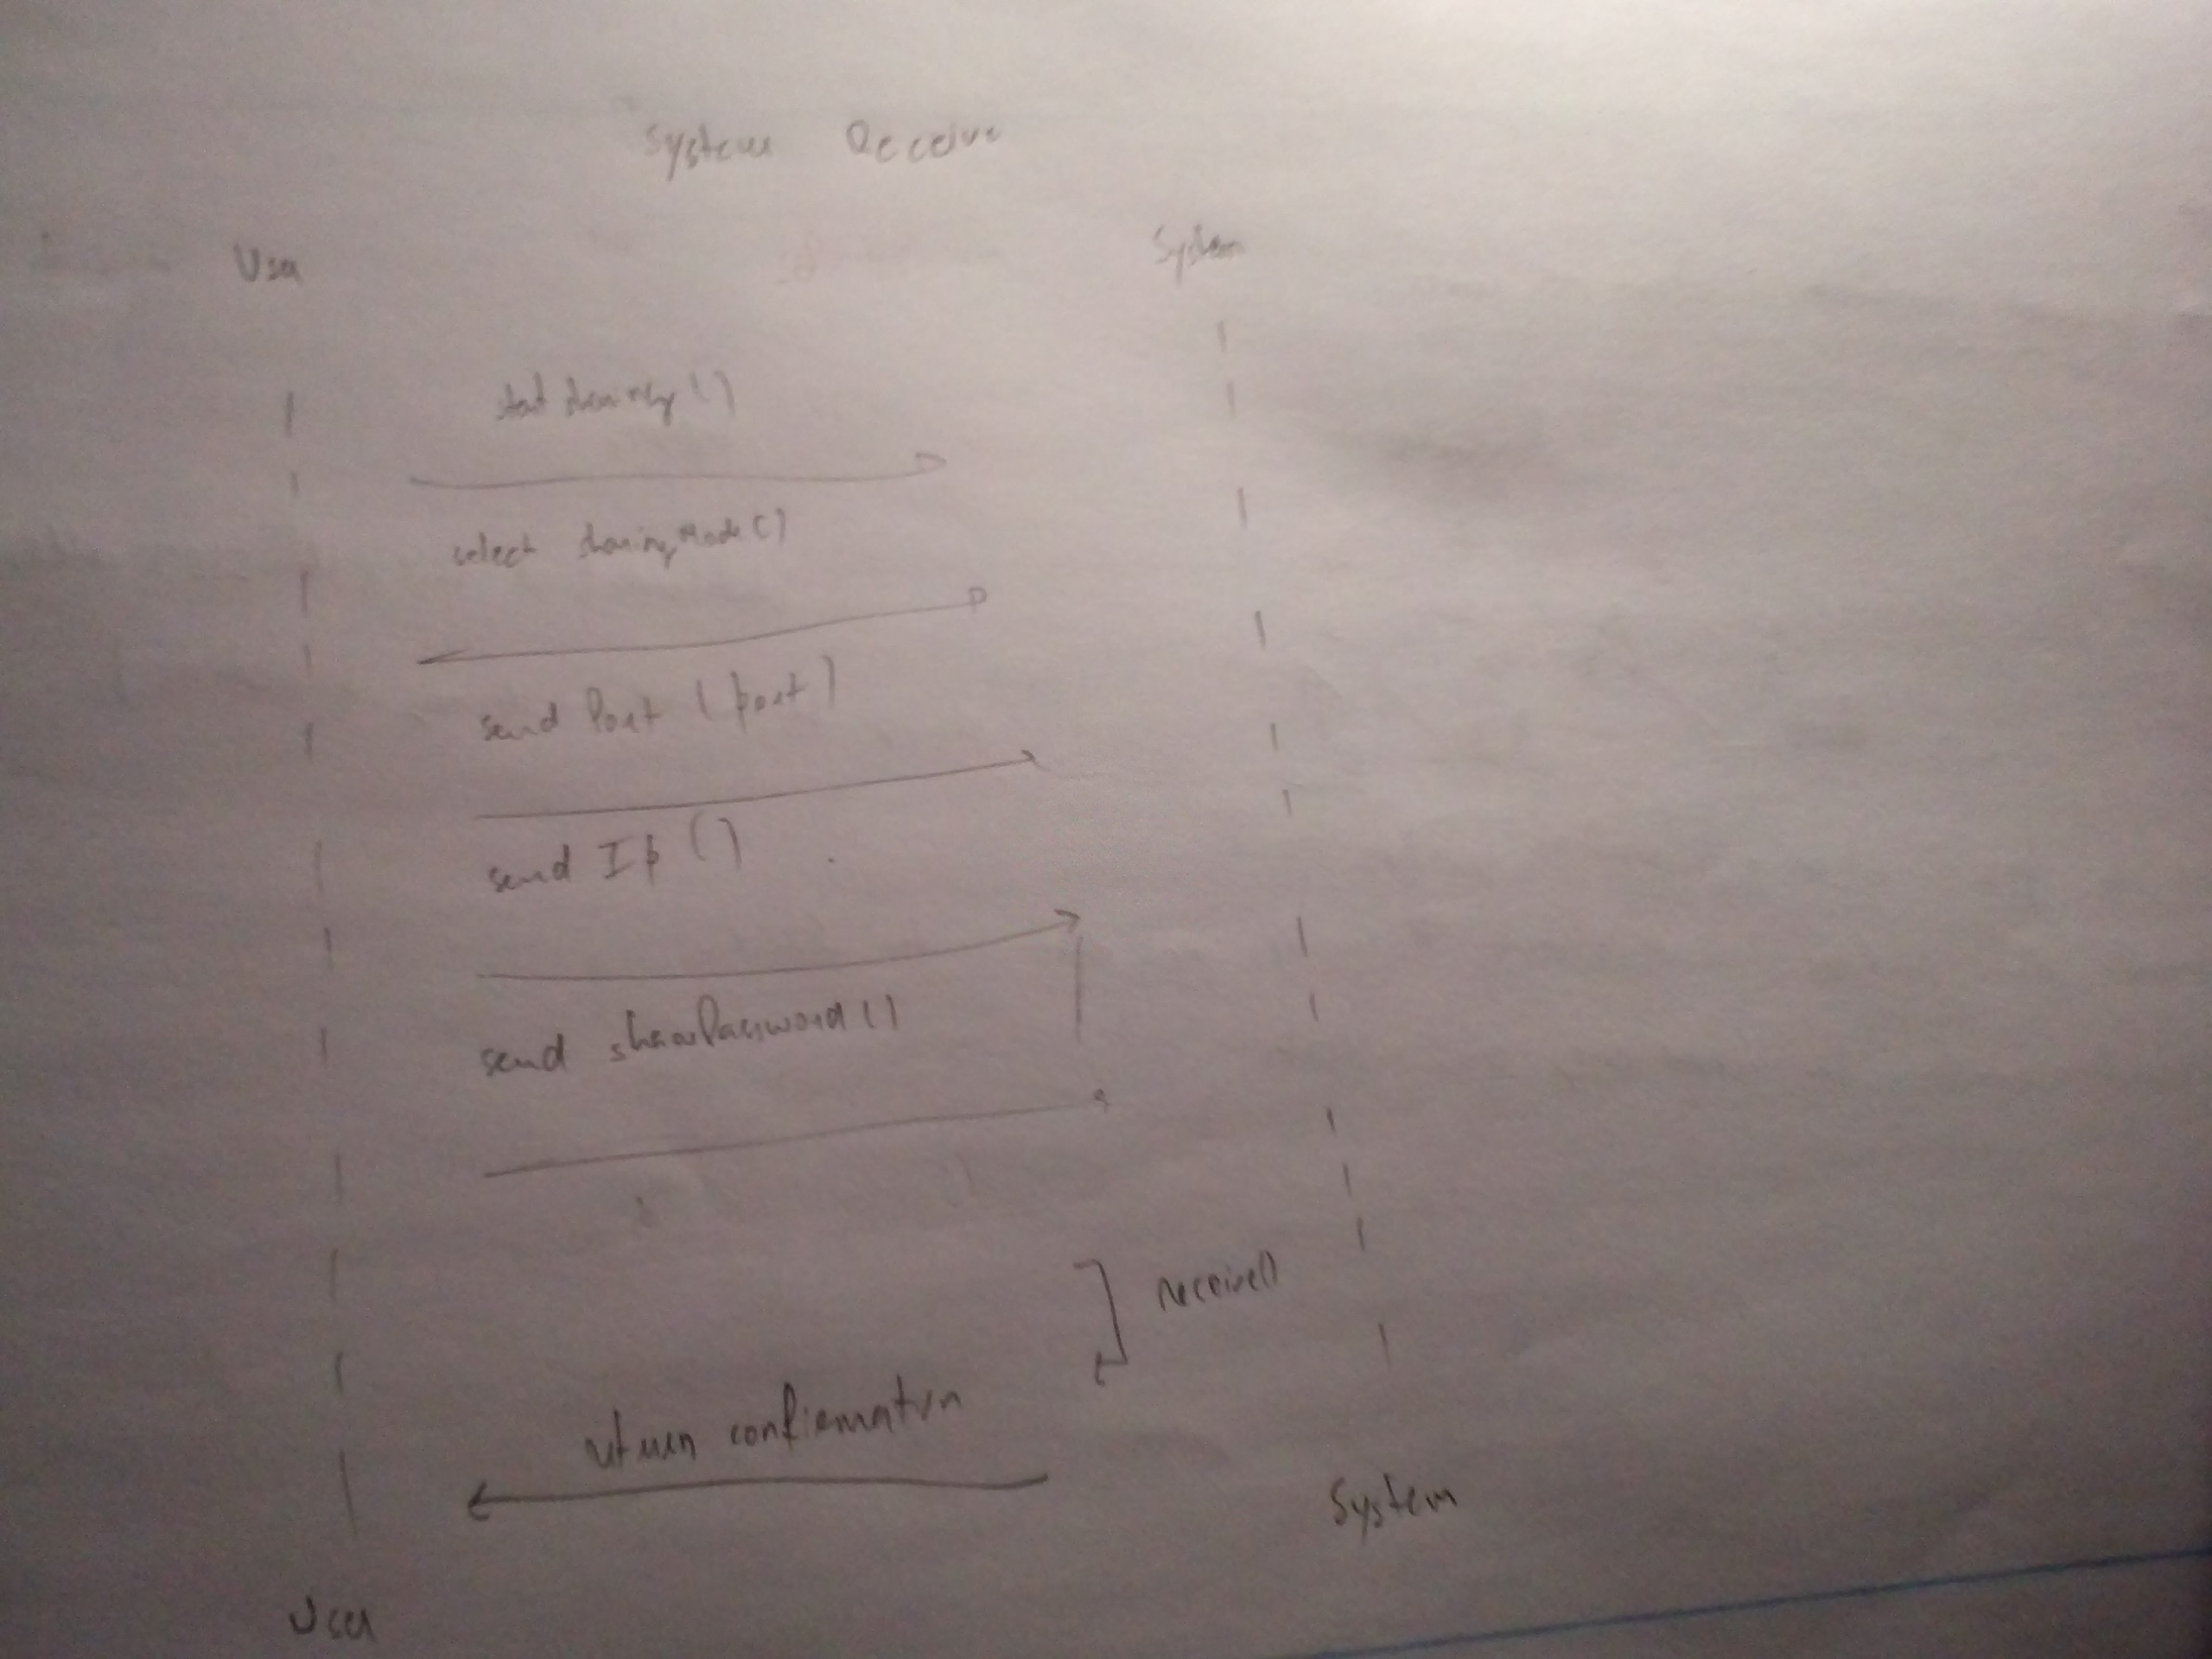 System Receive
User
System
start sharing()
select sharingMode()
send Port (port)
send Ip ()
send sharePassword()
receive()
return confirmation
System
User